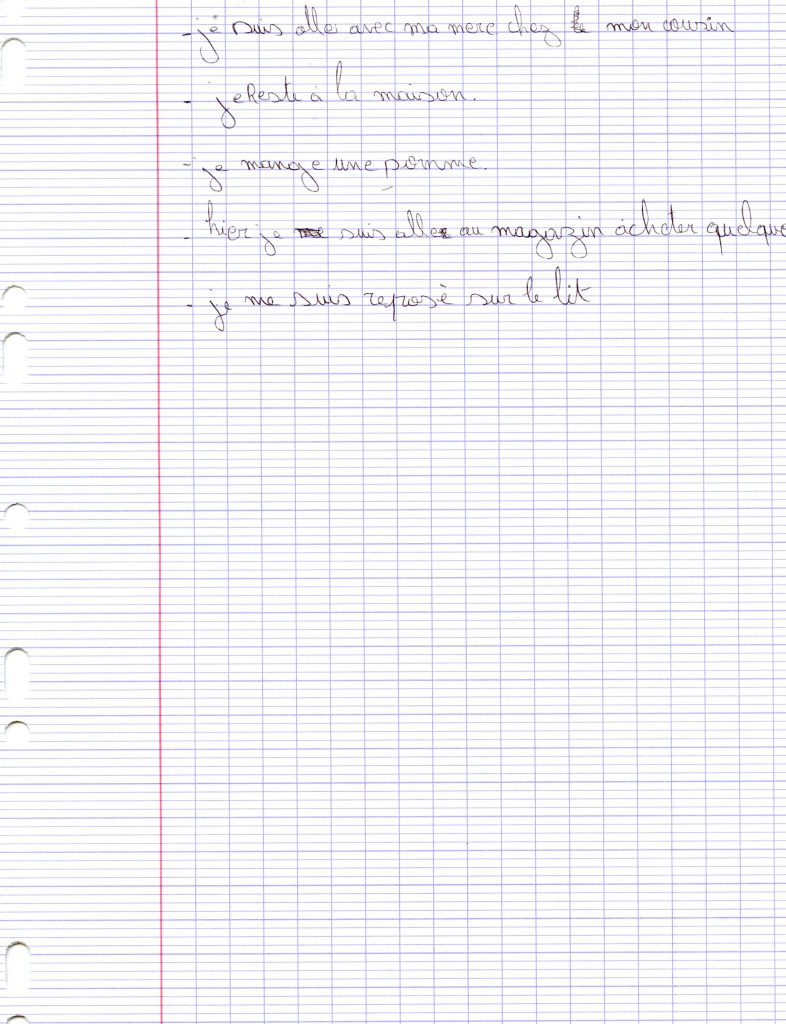 - je suis aller avec ma mere chez mon cousin
- je Reste à la maison.
- je mange une pomme.
- hier je suis aller au magazin acheter quelque
- je me suis reposé sur le lit